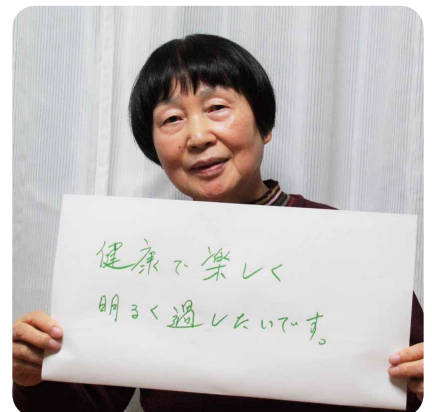 健康で楽しく
明るく過したいです。